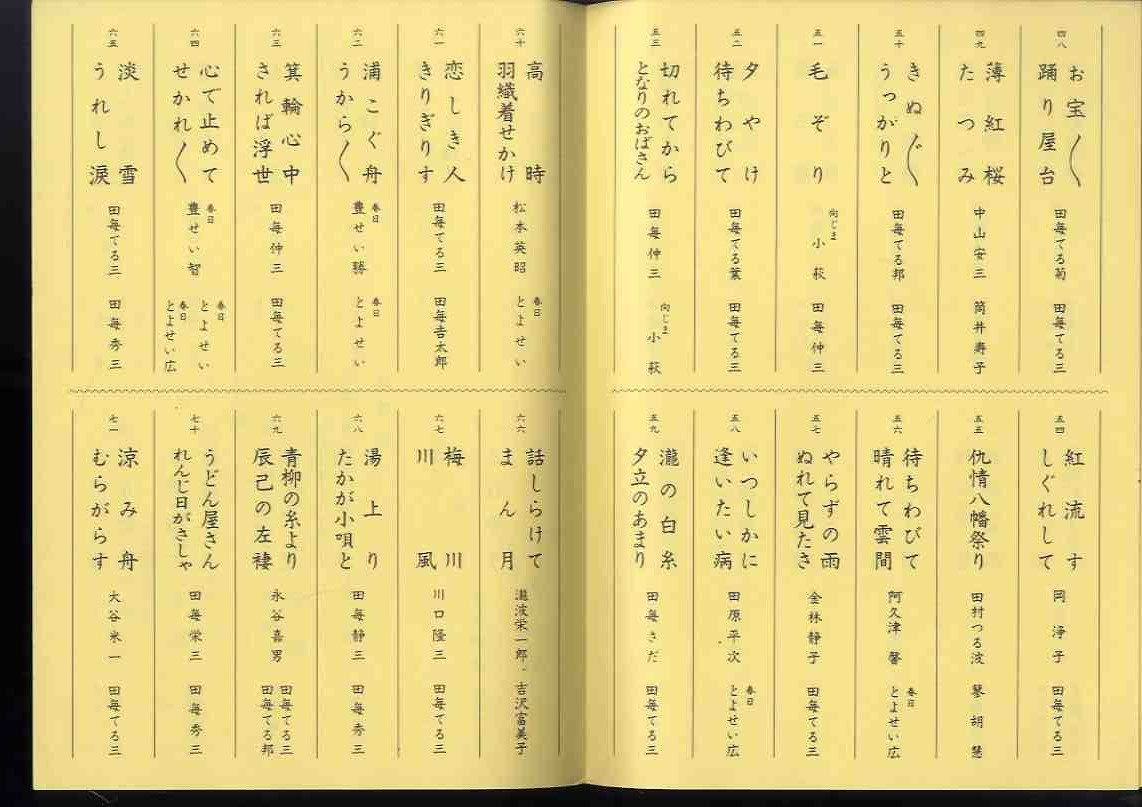 四八
お宝〱
踊り屋台
田毎てる菊
田毎てる三
四九
薄紅桜
たつみ
中山安三
筒井寿子
五十
きぬ〲
うっかりと
田毎てる邦
田毎てる三
五一
毛ぞり
向じま
小萩
田毎仲三
五二
夕やけ
待ちわびて
田毎てる葉
田毎てる三
五三
切れてから
となりのおばさん
田毎仲三
向じま
小萩
五四
紅流す
しぐれして
岡浄子
田毎てる三
五五
仇情八幡祭り
田村つる波
琴胡慧
五六
待ちわびて
晴れて雲間
阿久津馨
春日
とよせい広
五七
やらずの雨
ぬれて見たさ
金林静子
田毎てる三
五八
いつしかに
逢いたい病
田原平次
春日
とよせい広
五九
瀧の白糸
夕立のあまり
田毎さだ
田毎てる三
六十
高時
羽織着せかけ
松本英昭
春日
とよせい
六一
恋しき人
きりぎりす
田毎てる三
田毎𠮷太郎
六二
浦こぐ舟
うから〱
春日
豊せい勝
春日
とよせい
六三
箕輪心中
されば浮世
田毎仲三
田毎てる三
六四
心で止めて
せかれ〱
春日
豊せい智
春日
とよせい
春日
とよせい広
六五
淡雪
うれし涙
田毎てる三
田毎秀三
六六
話しらけて
まん月
瀧波栄一郎・吉沢富美子
六七
梅川
川風
川口隆三
田毎てる三
六八
湯上り
たかが小唄と
田毎静三
田毎秀三
六九
青柳の糸より
辰己の左褄
永谷喜男
田毎てる三
田毎てる邦
七十
うどん屋さん
れんじ日がさしゃ
田毎栄三
田毎秀三
七一
涼み舟
むらがらす
大谷米一
田毎てる三